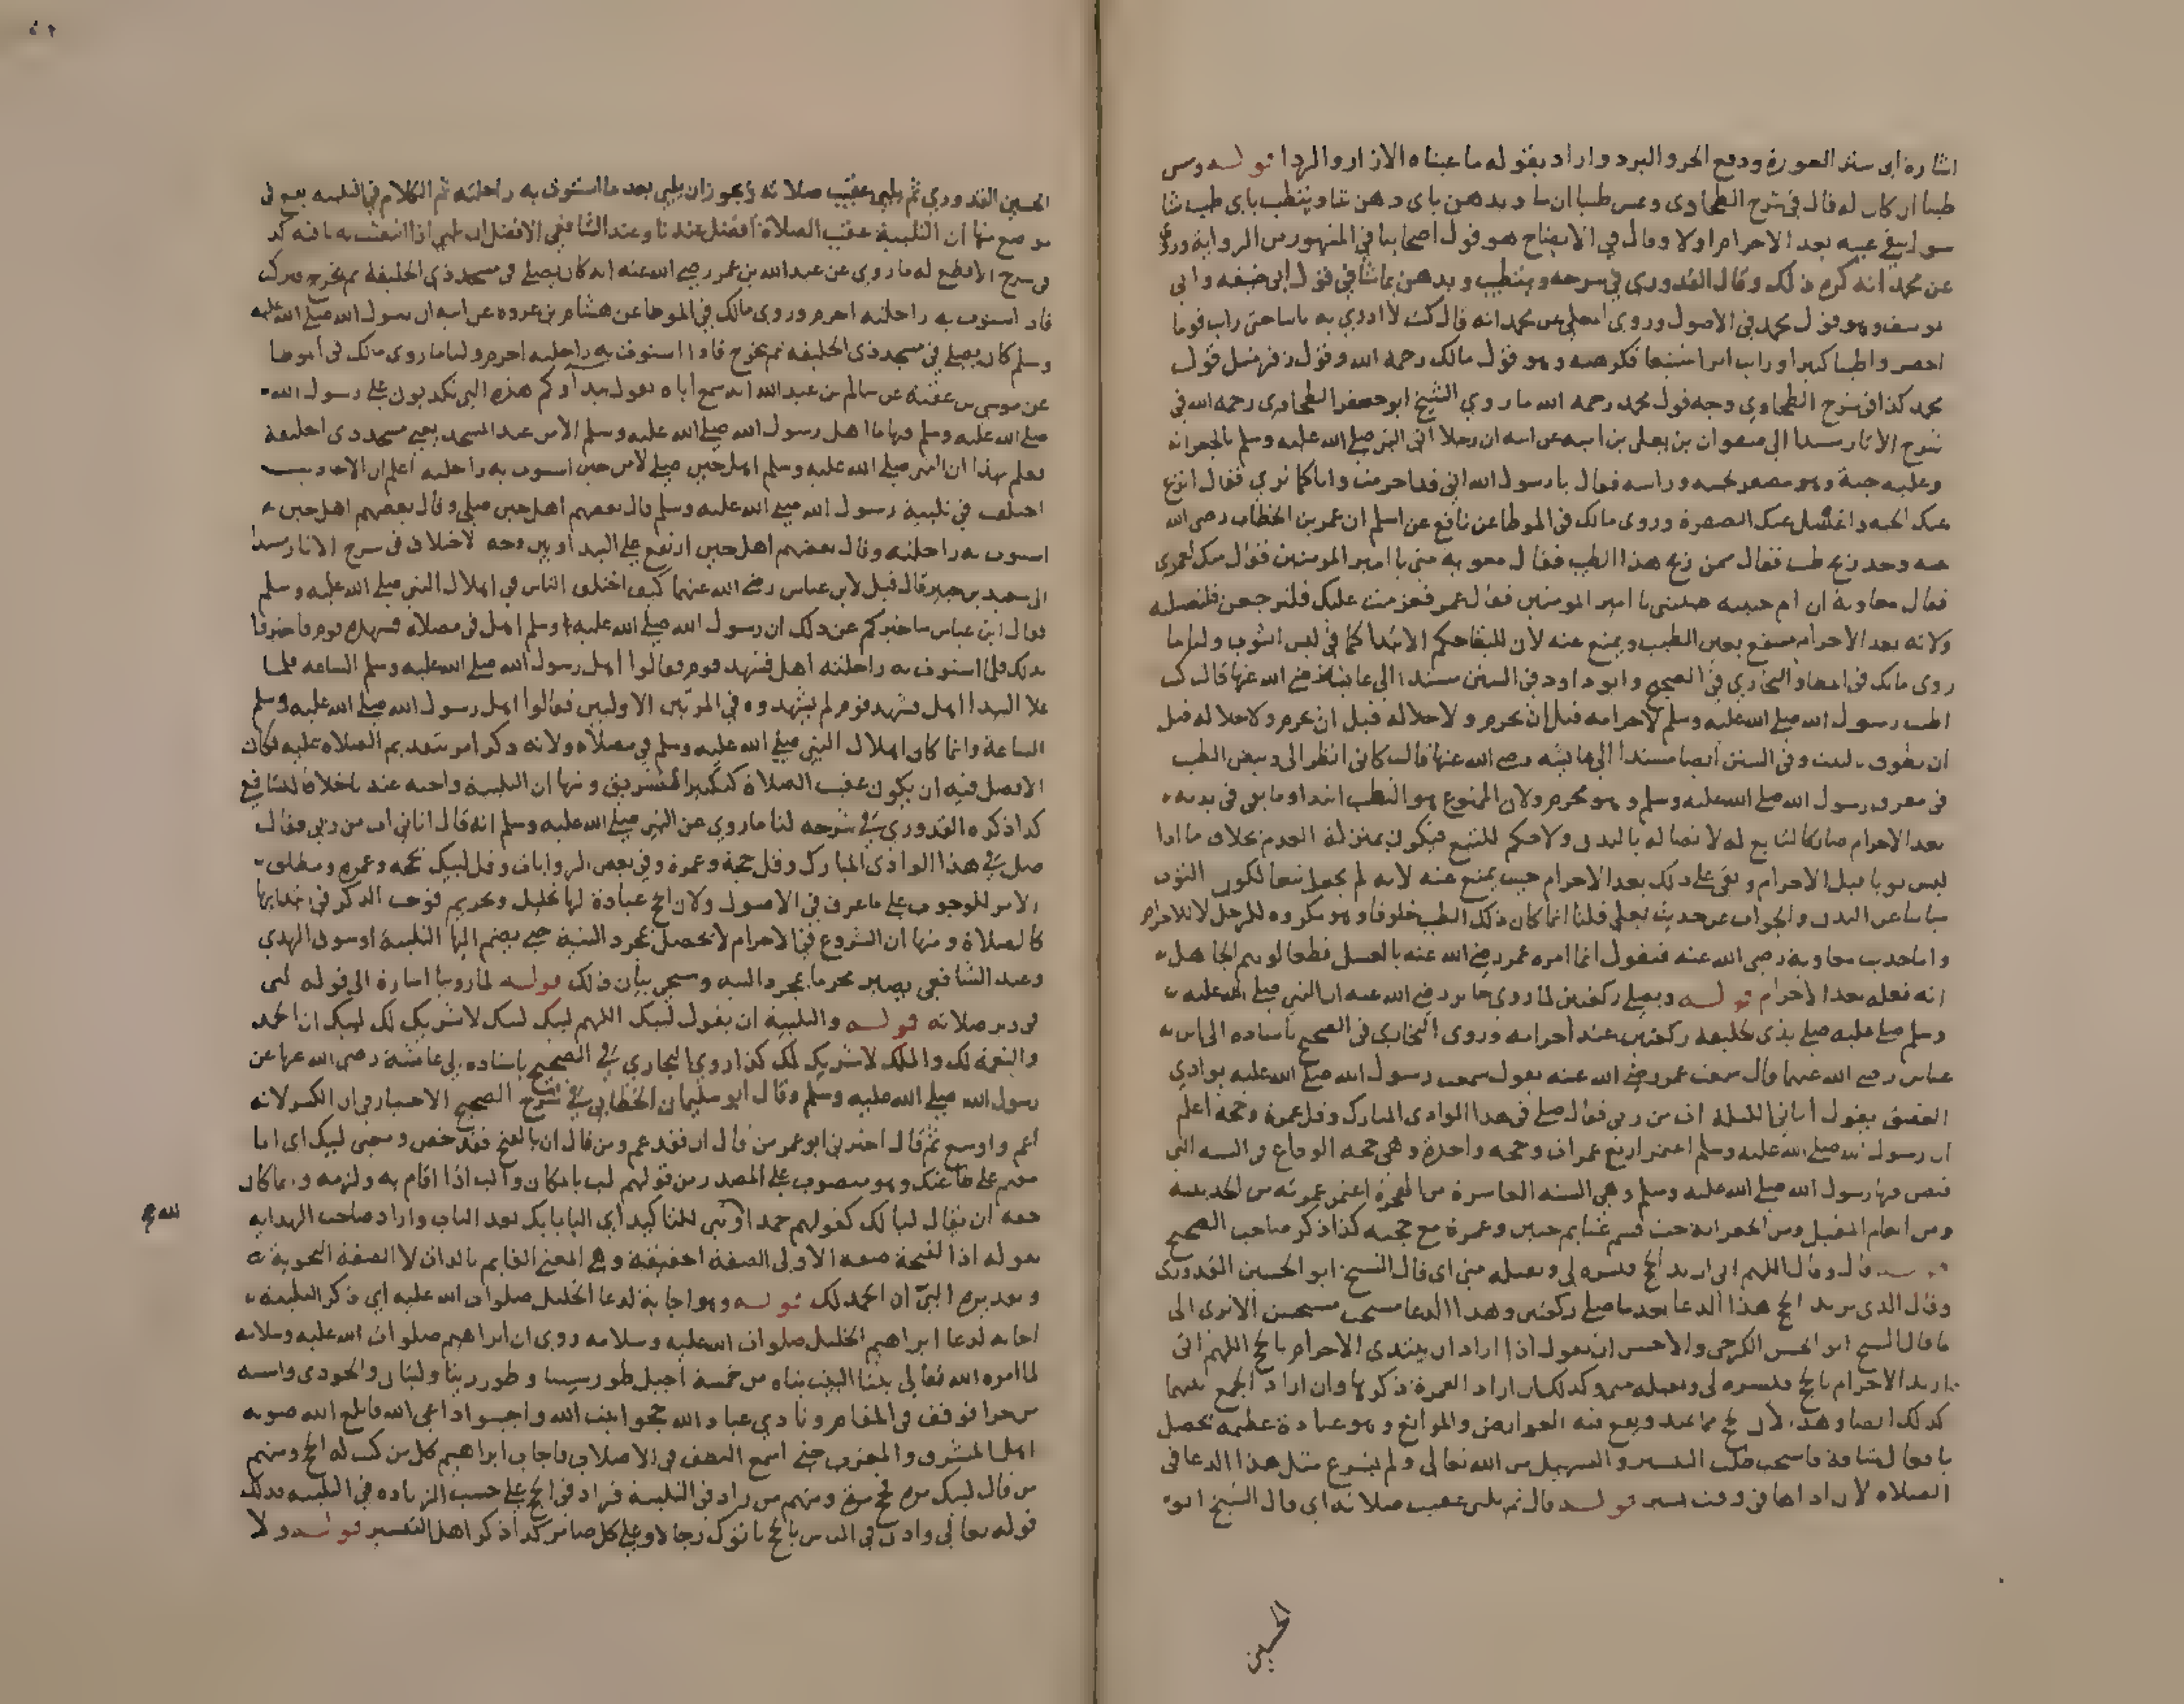 اشارة الى ستر العورة ودفع الحر والبرد واراد بقوله ما عيناه الازار والردا قوله ومس
طيبا ان كان له قال في شرح الطحاوي ويمس طيبا ان شا ويدهن باي دهن شا ويتطيب باي طيب شا
سوا بقي عينه بعد الاحرام او لا وقال في الايضاح هو قول اصحابنا في المشهور من الرواية وروي
عن محمد انه كره ذلك وقال القدوري في شرحه ويتطيب ويدهن بما شا في قول ابي حنيفه وابي
يوسف وهو قول محمد في الاصول وروى المعلى عن محمد انه قال كنت لا ارى به باسا حتى رايت قوما
احضروا طيبا كثيرا ورايت امرا شنيعا فكرهته وهو قول مالك رحمه الله وقول زفر مثل قول
محمد كذا في شرح الطحاوي وجه قول محمد رحمه الله ما روى الشيخ ابو جعفر الطحاوي رحمه الله في
شرح الاثار مسندا الى صفوان بن يعلى بن اميه عن ابيه ان رجلا اتى النبي صلى الله عليه وسلم بالجعرانه
وعليه جبة وهو مصفر لحيته وراسه فقال يا رسول الله اني قد احرمت وانا كما ترى فقال انزع
عنك الجبه واغسل عنك الصفرة وروى مالك في الموطا عن نافع عن اسلم ان عمر بن الخطاب رضي الله
عنه وجد ريح طيب فقال ممن ريح هذا الطيب فقال معوية مني يا امير المومنين فقال منك لعمري
فقال معاوية ان ام حبيبه طيبتني يا امير المومنين فقال عمر فعزمت عليك فلترجعن فلتغسله
ولانه بعد الاحرام منتفع بعين الطيب ويمنع عنه لان للبقا حكم الابتدا كما في لبس الثوب ولنا ما
روى مالك في الموطا والبخاري في الصحيح وابو داود في السنن مسندا الى عايشة رضي الله عنها قالت كنت
اطيب رسول الله صلى الله عليه وسلم لاحرامه قبل ان يحرم ولاحلاله قبل ان يحرم ولاحلاله قبل
ان يطوف بالبيت وفي السنن ايضا مسندا الى عايشه رضي الله عنها قالت كاني انظر الى وبيض الطيب
في مفرق رسول الله صلى الله عليه وسلم وهو محرم ولان الممنوع هو التطيب ابتدا وما بقي في بدنه
بعد الاحرام صار كالتابع له لاتصاله بالبدن ولا حكم للتبع فيكون بمنزلة العدم بخلاف ما اذا
لبس ثوبا قبل الاحرام وبقي على ذلك بعد الاحرام حيث يمنع عنه لانه لم يجعل تبعا لكون الثوب
مباينا عن البدن والجواب عن حديث يعلى قلنا انما كان ذلك الطيب خلوقا وهو مكروه للرجل لا للاحرام
واما حديث معاوية رضي الله عنه فنقول انما امره عمر رضي الله عنه بالغسل قطعا لوهم الجاهل
انه فعله بعد الاحرام قوله ويصلي ركعتين لما روى جابر رضي الله عنه ان النبي صلى الله عليه
وسلم صلى بذي الحليفة ركعتين عند احرامه وروى البخاري في الصحيح باسناده الى ابن
عباس رضي الله عنهما قال سمعت عمر رضي الله عنه يقول سمعت رسول الله صلى الله عليه بوادي
العقيق يقول اتاني الليلة ات من ربي فقال صلي في هذا الوادي المبارك وقل عمرة وحجة اعلم
ان رسول الله صلى الله عليه وسلم اعتمر اربع عمرات وحجه واحدة وهي حجه الوداع في السنه التي
قبض فيها رسول الله صلى الله عليه وسلم وهي السنه العاشرة من الهجرة اعتمر عمرته من الحديبيه
ومن العام المقبل ومن الجعرانة حيث قسم غنايم حنين وعمرة مع حجته كذا ذكر صاحب الصحيح
قوله قال وقال اللهم اني اريد الحج فيسره لي وتقبله مني اي قال الشيخ ابو الحسين القدوري
وقال الذي يريد الحج هذا الدعا بعد ما صلى ركعتين وهذا الدعا مستحب مستحسن الا ترى الى
ما قال الشيخ ابو الحسن الكرخي والاحسن ان يقول اذا اراد ان يبتدي الاحرام بالحج اللهم اني
اريد الاحرام بالحج فيسره لي وتقبله مني وكذلك ان اراد العمرة ذكرها وان اراد الجمع بينهما
كذلك ايضا وهذا لان الحج مما يمتد ويقع فيه العوارض والموانع وهو عبادة عظيمه تحصل
بافعال شاقة فاستحب طلب التيسير والتسهيل من الله تعالى ولم يشرع مثل هذا الدعا في
الصلاه لان اداها في وقت يسير قوله قال ثم يلبي عقيب صلاته اي قال الشيخ ابو
الحسين
الحسين القدوري ثم يلبي عقيب صلاته ويجوز ان يلبي بعد ما استوت به راحلته ثم الكلام في التلبيه يقع في
مواضع منها ان التلبية عقيب الصلاة افضل عندنا وعند الشافعي الافضل ان يلبي اذا انبعثت به ناقته كذا
في شرح الاقطع له ما روي عن عبد الله بن عمر رضي الله عنه انه كان يصلي في مسجد ذي الحليفة ثم يخرج فيركب
فاذا استوت به راحلته احرم وروى مالك في الموطا عن هشام بن عروه عن ابيه ان رسول الله صلى الله عليه
وسلم كان يصلي في مسجد ذي الحليفه ثم يخرج فاذا استوت به راحلته احرم ولنا ما روى مالك في الموطا
عن موسى بن عقبة عن سالم بن عبد الله انه سمع اباه يقول بيداؤكم هذه التي تكذبون على رسول الله
صلى الله عليه وسلم فيها ما اهل رسول الله صلى الله عليه وسلم الا من عند المسجد يعني مسجد ذي الحليفة
فعلم بهذا ان النبي صلى الله عليه وسلم اهل حين صلى لا من حين استوت به راحلته اعلم ان الاحاديث
اختلفت في تلبية رسول الله صلى الله عليه وسلم قال بعضهم اهل حين صلى وقال بعضهم اهل حين
استوت به راحلته وقال بعضهم اهل حين ارتفع على البيدا وبين وجه الاختلاف في شرح الاثار مسندا
الى سعيد بن جبير قال قيل لابن عباس رضي الله عنهما كيف اختلف الناس في اهلال النبي صلى الله عليه وسلم
فقال ابن عباس ساخبركم عن ذلك ان رسول الله صلى الله عليه وسلم اهل في مصلاه فشهده قوم فاخبروا
بذلك فلما استوت به راحلته اهل فشهد قوم فقالوا اهل رسول الله صلى الله عليه وسلم الساعه فلما
علا البيدا اهل فشهد قوم لم يشهدوه في المرتين الاوليين فقالوا اهل رسول الله صلى الله عليه وسلم
الساعة وانما كان اهلال النبي صلى الله عليه وسلم في مصلاه ولانه ذكر امر بتقديم الصلاه عليه فكان
الافضل فيه ان يكون عقيب الصلاة كتكبير التشريق ومنها ان التلبية واجبه عندنا خلافا للشافعي
كذا ذكره القدوري في شرحه لنا ما روي عن النبي صلى الله عليه وسلم انه قال اتاني ات من ربي فقال
صل في هذا الوادي المبارك وقل حجة وعمرة وفي بعض الروايات وقل لبيك بحجه وعمره ومطلق
الامر للوجوب على ما عرف في الاصول ولان الحج عبادة لها تحليل وتحريم فوجب الذكر في ابتدايها
كالصلاة ومنها ان الشروع في الاحرام لا يحصل بمجرد النية حتى يضم اليها التلبية او سوق الهدي
وعند الشافعي يصير محرما بمجرد النيه وسيجي بيان ذلك قوله لما روينا اشارة الى قوله لبى
في دبر صلاته قوله والتلبية ان يقول لبيك اللهم لبيك لبيك لا شريك لك لبيك ان الحمد
والنعمة لك والملك لا شريك لك كذا روى البخاري في الصحيح باسناده الى عائشة رضي الله عنها عن
رسول الله صلى الله عليه وسلم وقال ابو سليمان الخطابي في شرح الصحيح الاختيار في ان الكسر لانه
اعم واوسع ثم قال اخبرني ابو عمر من قال ان فقد عم ومن قال ان بالفتح فقد خص ومعنى لبيك اي انا
مقيم على طاعتك وهو منصوب على المصدر من قولهم لب بالمكان والب اذا اقام به ولزمه وكان
حقه ان يقال لبا لك كقولهم حمدا وثني للتاكيد اي البابا بك بعد الباب واراد صاحب الهدايه
بقوله اذ الفتحة صفة الاولى الصفة الحقيقة وهي المعنى القايم بالذات لا الصفة النحوية
وتقديره البي ان الحمد لك قوله وهو اجابة لدعا الخليل صلوات الله عليه اي ذكر التلبية
اجابه لدعا ابراهيم الخليل صلوات الله عليه وسلامه روي ان ابراهيم صلوات الله عليه وسلامه
لما امره الله تعالى ببنا البيت بناه من خمسة اجبل طور سينا وطور زيتا ولبنان والجودي واسسه
من حرا فوقف في المقام ونادى عباد الله حجوا بيت الله واجيبوا داعي الله فابلغ الله صوته
اهل المشرق والمغرب حتى اسمع النطف في الاصلاب فاجاب ابراهيم كل من كتب له الحج ومنهم
من قال لبيك مرة حج مرة ومنهم من زاد في التلبية فزاد في الحج على حسب الزياده في التلبيه فذلك
قوله تعالى واذن في الناس بالحج ياتوك رجالا وعلى كل ضامر كذا ذكر اهل التفسير قوله ولا